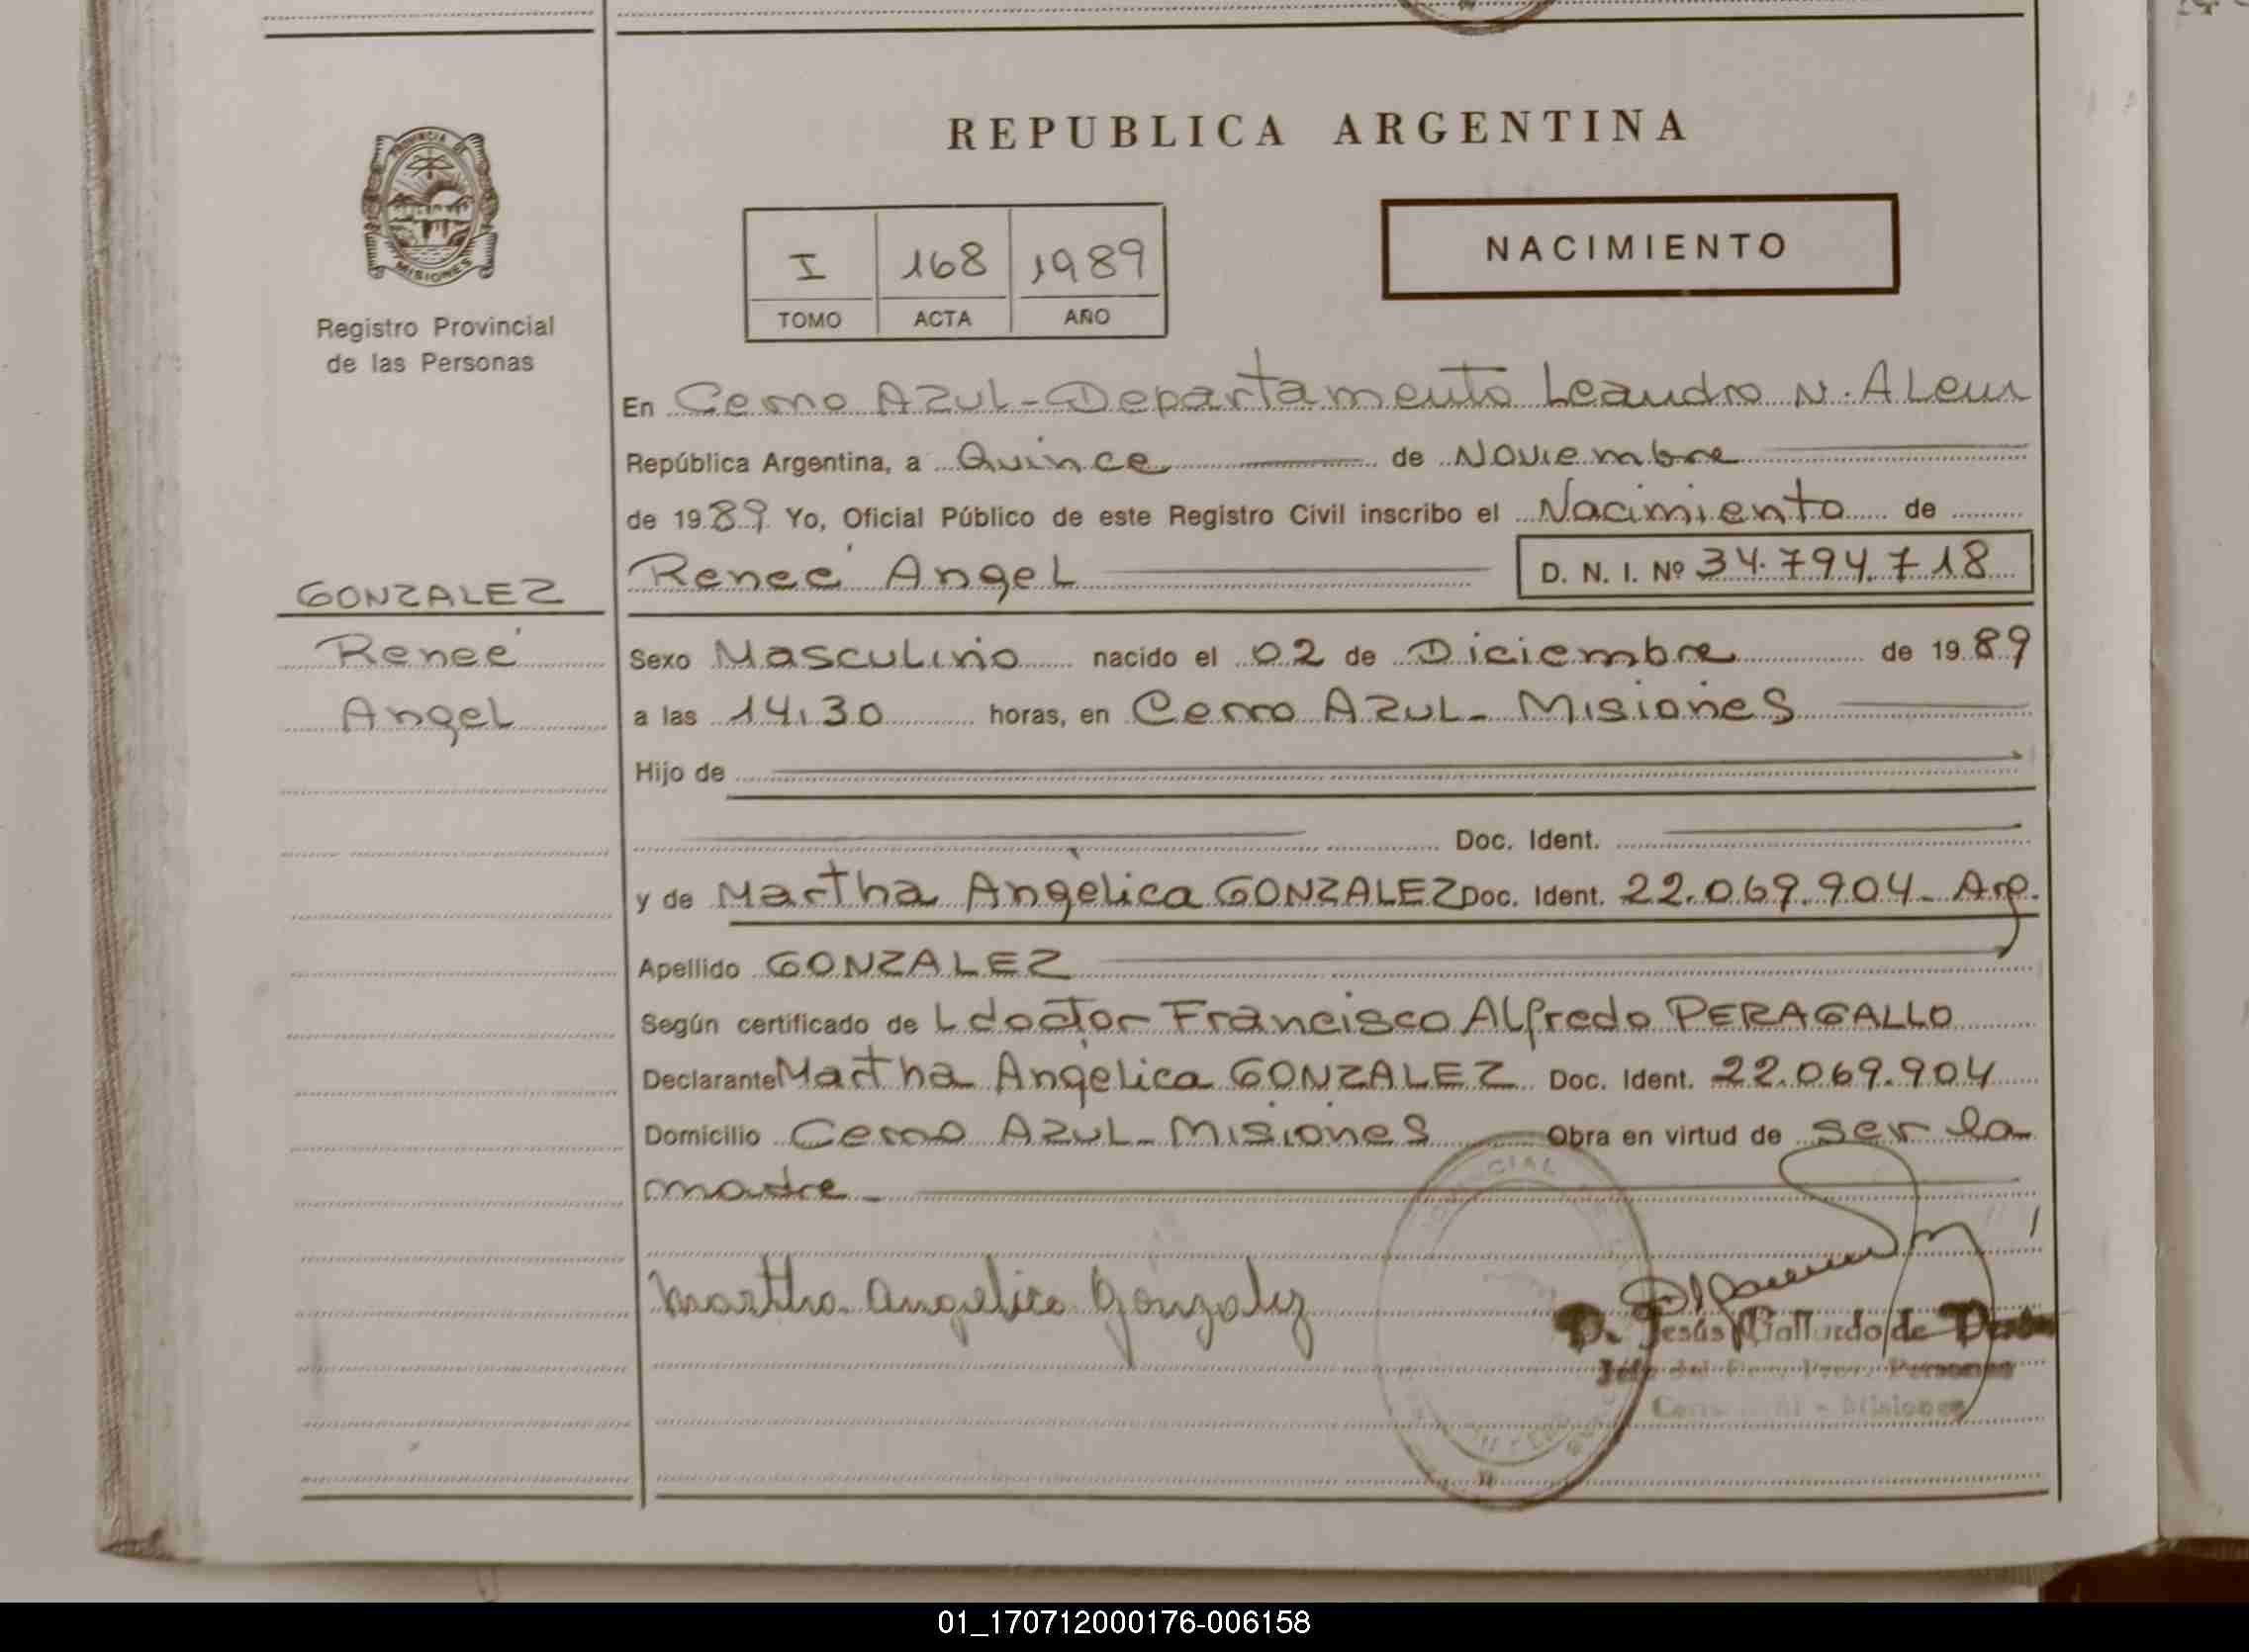 REPUBLICA ARGENTINA
PROVINCIA DE
MISIONES
Registro Provincial
de las Personas
I 168 1989
TOMO ACTA AÑO
NACIMIENTO
En Cerro AzuL-Departamento Leandro N. ALem
República Argentina, a Quince de Noviembre
de 1989 Yo, Oficial Público de este Registro Civil inscribo el Nacimiento de
Reneé AngeL D. N. I. Nº 34.794.718
GONZALEZ
Reneé
AngeL
Sexo MascuLino nacido el 02 de Diciembre de 1989
a las 14,30 horas, en Cerro AzuL- Misiones
Hijo de
Doc. Ident.
y de Martha Angélica GONZALEZ Doc. Ident. 22.069.904- Arg.
Apellido GONZALEZ
Según certificado de L doctor Francisco ALfredo PERAGALLO
Declarante Martha Angélica GONZALEZ Doc. Ident. 22.069.904
Domicilio Cerro AzuL- Misiones Obra en virtud de ser la
madre-
Martha Angelica Gonzalez
D. Jesús Gallardo de
Misiones
01_170712000176-006158